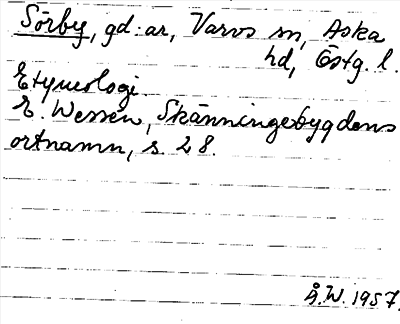 Sörby, gd:ar, Varvs sn, Aska
hd, Östg. l.
Etymologi.
E. Wessén, Skänningebygdens
ortnamn, s. 28.
Å.W. 1957.